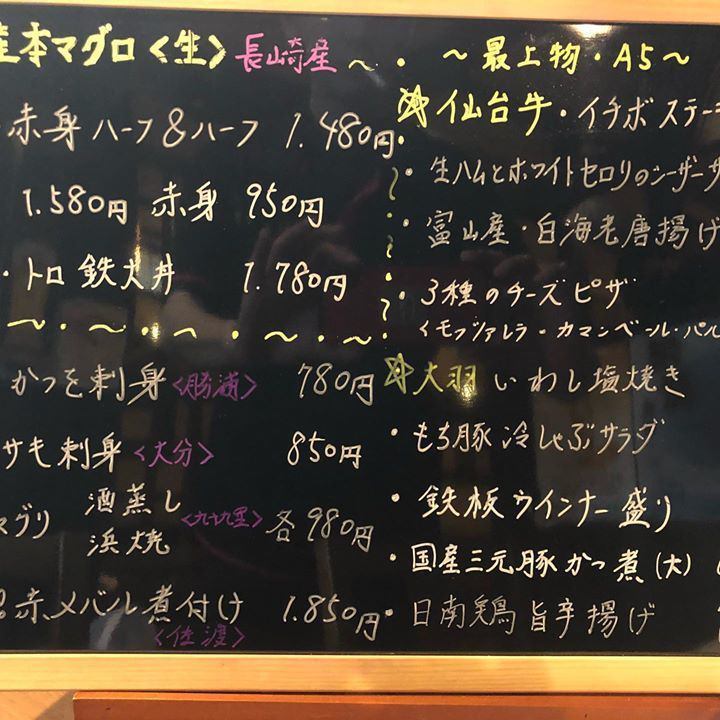 本マグロ〈生〉長崎産
赤身ハーフ&ハーフ 1.480円
1.580円 赤身 950円
・トロ鉄火丼 1.780円
かつを刺身〈勝浦〉 780円
サキ刺身〈大分〉 850円
グリ 酒蒸し 〈九十九里〉各980円
浜焼
赤メバル煮付け 1.850円
〈佐渡〉
〜最上物・A5〜
仙台牛・イチボステー
・生ハムとホワイトセロリのシーザーサ
・富山産・白海老唐揚げ
・3種のチーズピザ
〈モッツァレラ・カマンベール・パル
☆大羽いわし塩焼き
・もち豚冷しゃぶサラダ
・鉄板ウインナー盛り
・国産三元豚かつ煮(大)
・日南鶏旨辛揚げ